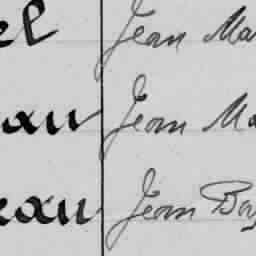 el Jean Ma
au Jean Ma
eau Jean Ba